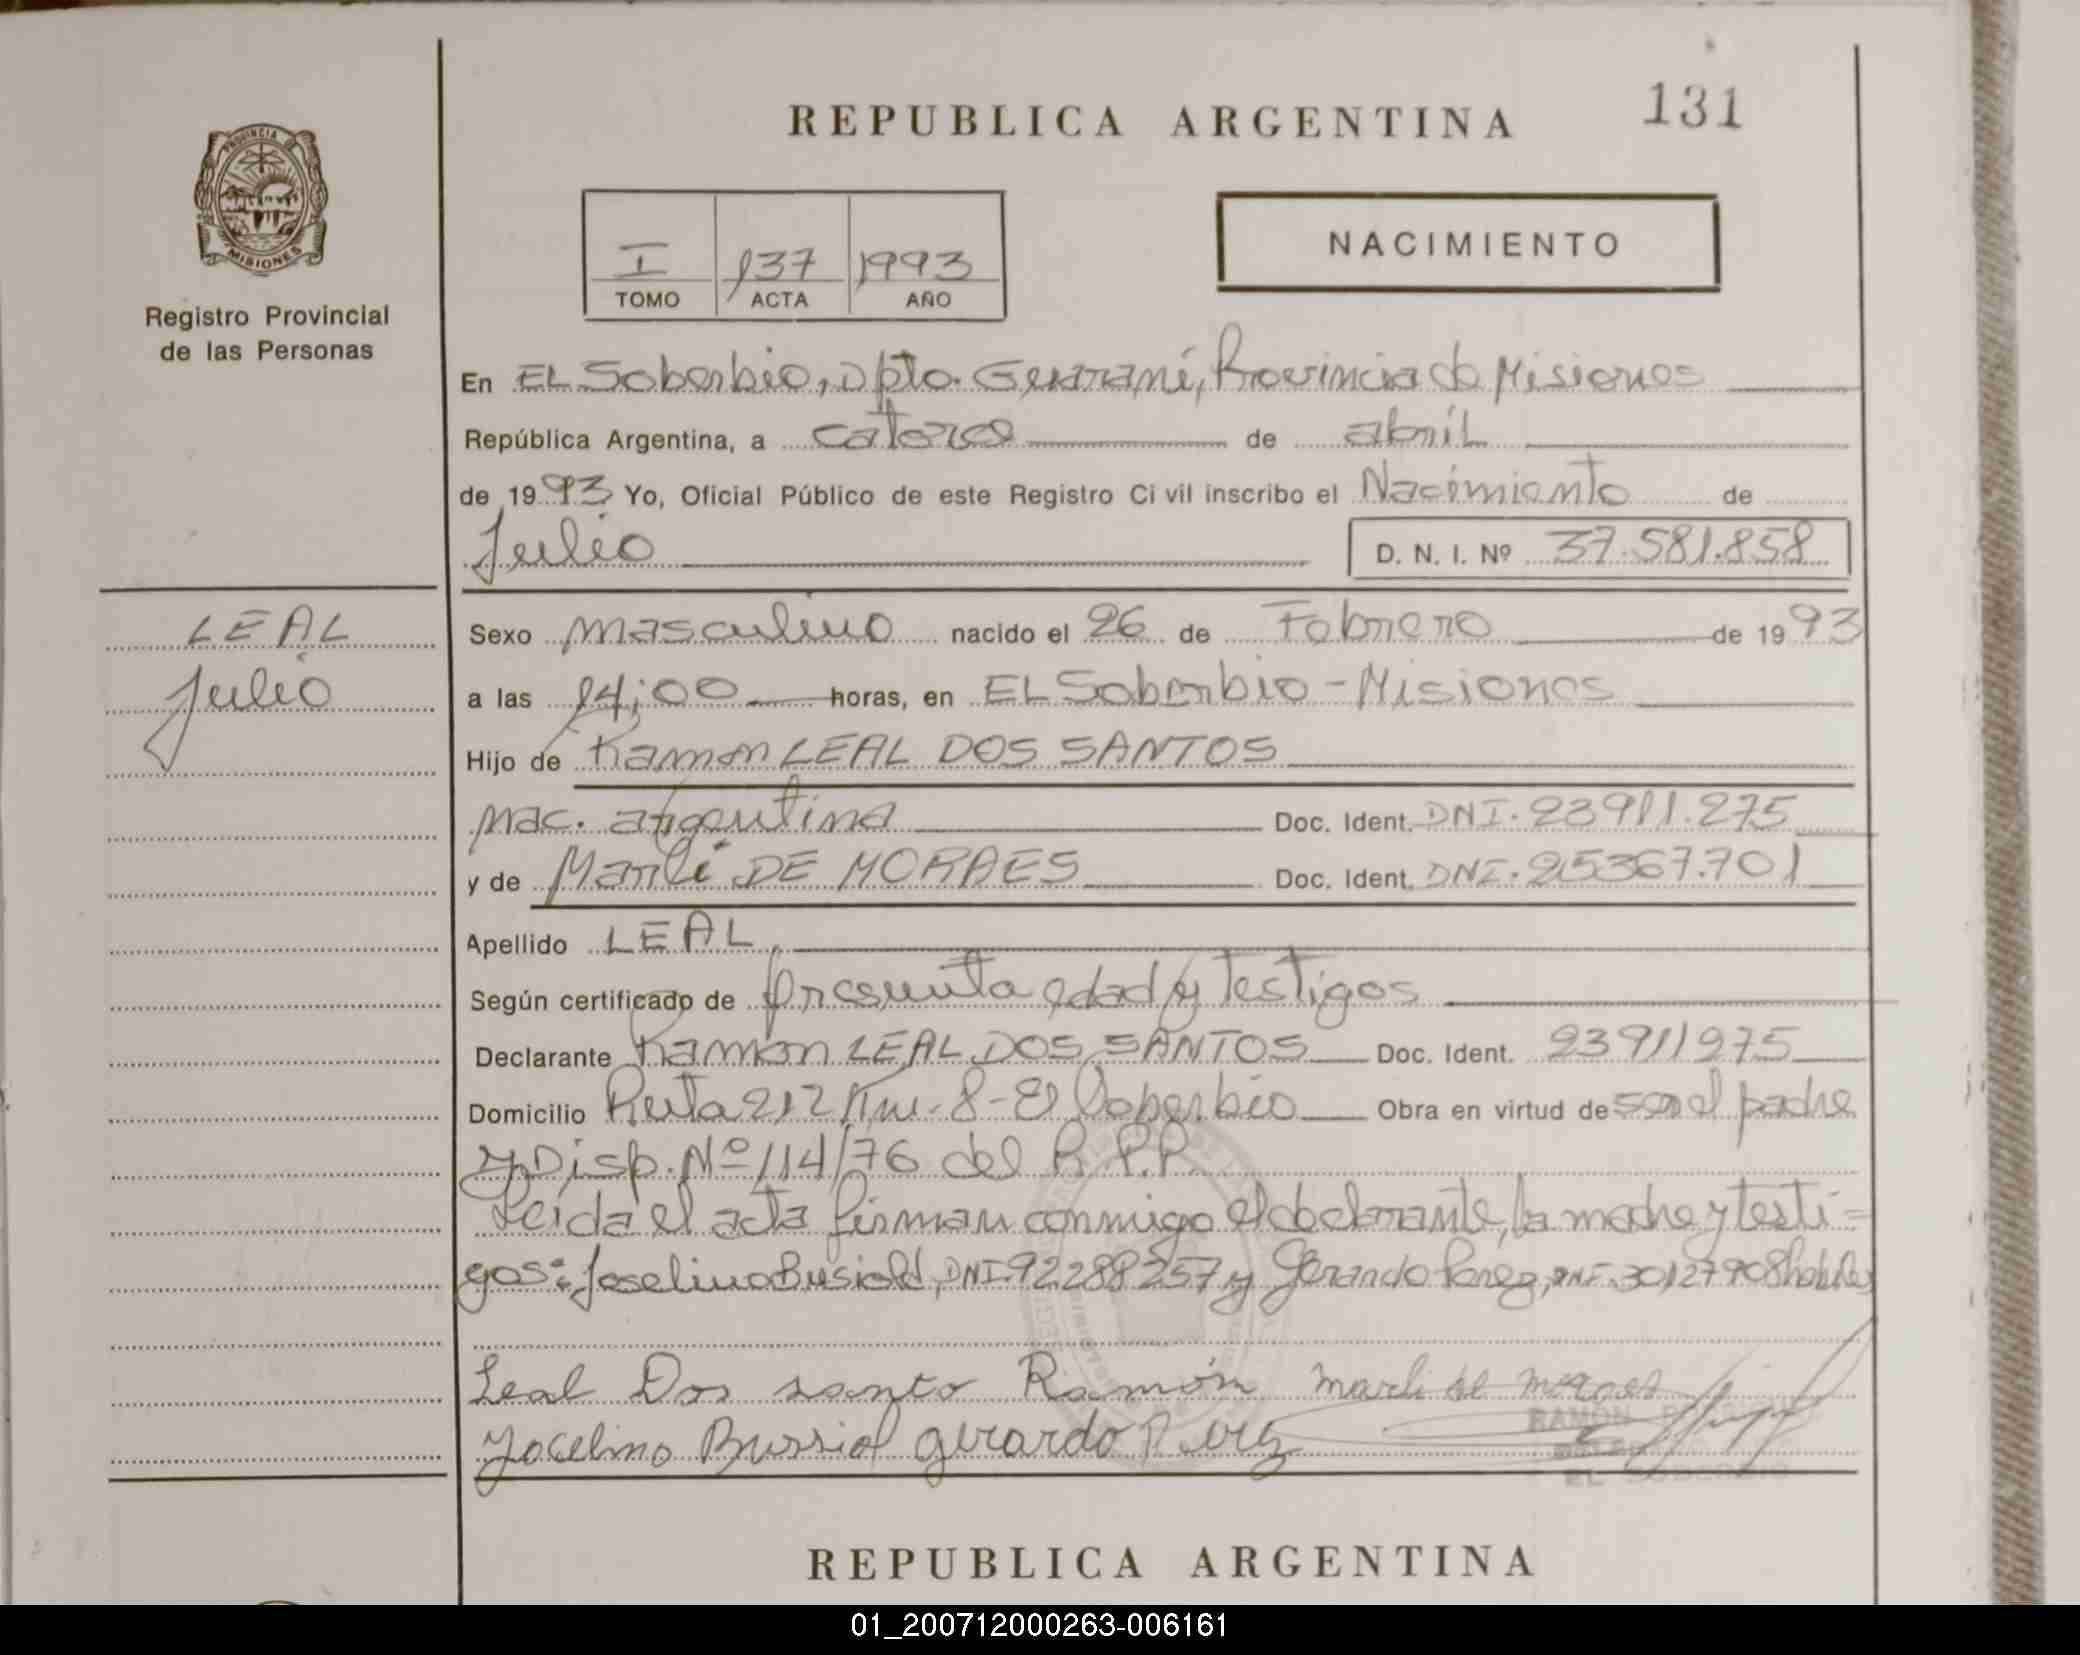 REPUBLICA ARGENTINA
131
PROVINCIA DE
MISIONES
Registro Provincial
de las Personas
I 137 1993
TOMO ACTA AÑO
NACIMIENTO
En EL Soberbio, Dpto. Guaraní, Provincia de Misiones
República Argentina, a catorce de abril
de 1993 Yo, Oficial Público de este Registro Ci vil inscribo el Nacimiento de
Julio D. N. I. Nº 37.581.858
LEAL
Julio
Sexo masculino nacido el 26 de Febrero de 1993
a las 14;00 horas, en EL Soberbio - Misiones
Hijo de Ramon LEAL DOS SANTOS
nac. argentina Doc. Ident. DNI. 23911.275
y de Marli DE MORAES Doc. Ident. DNI. 25367.701
Apellido LEAL
Según certificado de presunta edad y Testigos
Declarante Ramón LEAL DOS SANTOS Doc. Ident. 23911275
Domicilio Ruta 212 Km. 8 - El Soberbio Obra en virtud de ser el padre
y Disp. Nº 114/76 del R.P.P.
Leida el acta firman conmigo el declarante, la madre y testi-
gos: Joselino Busiold, DNI. 92288257 y Gerardo Perez, DNI. 30127908
Leal Dos santo Ramón marli de moraes
Jocelino Bussiol gerardo Perez
RAMÓN
EL SOBERBIO
REPUBLICA ARGENTINA
01_200712000263-006161